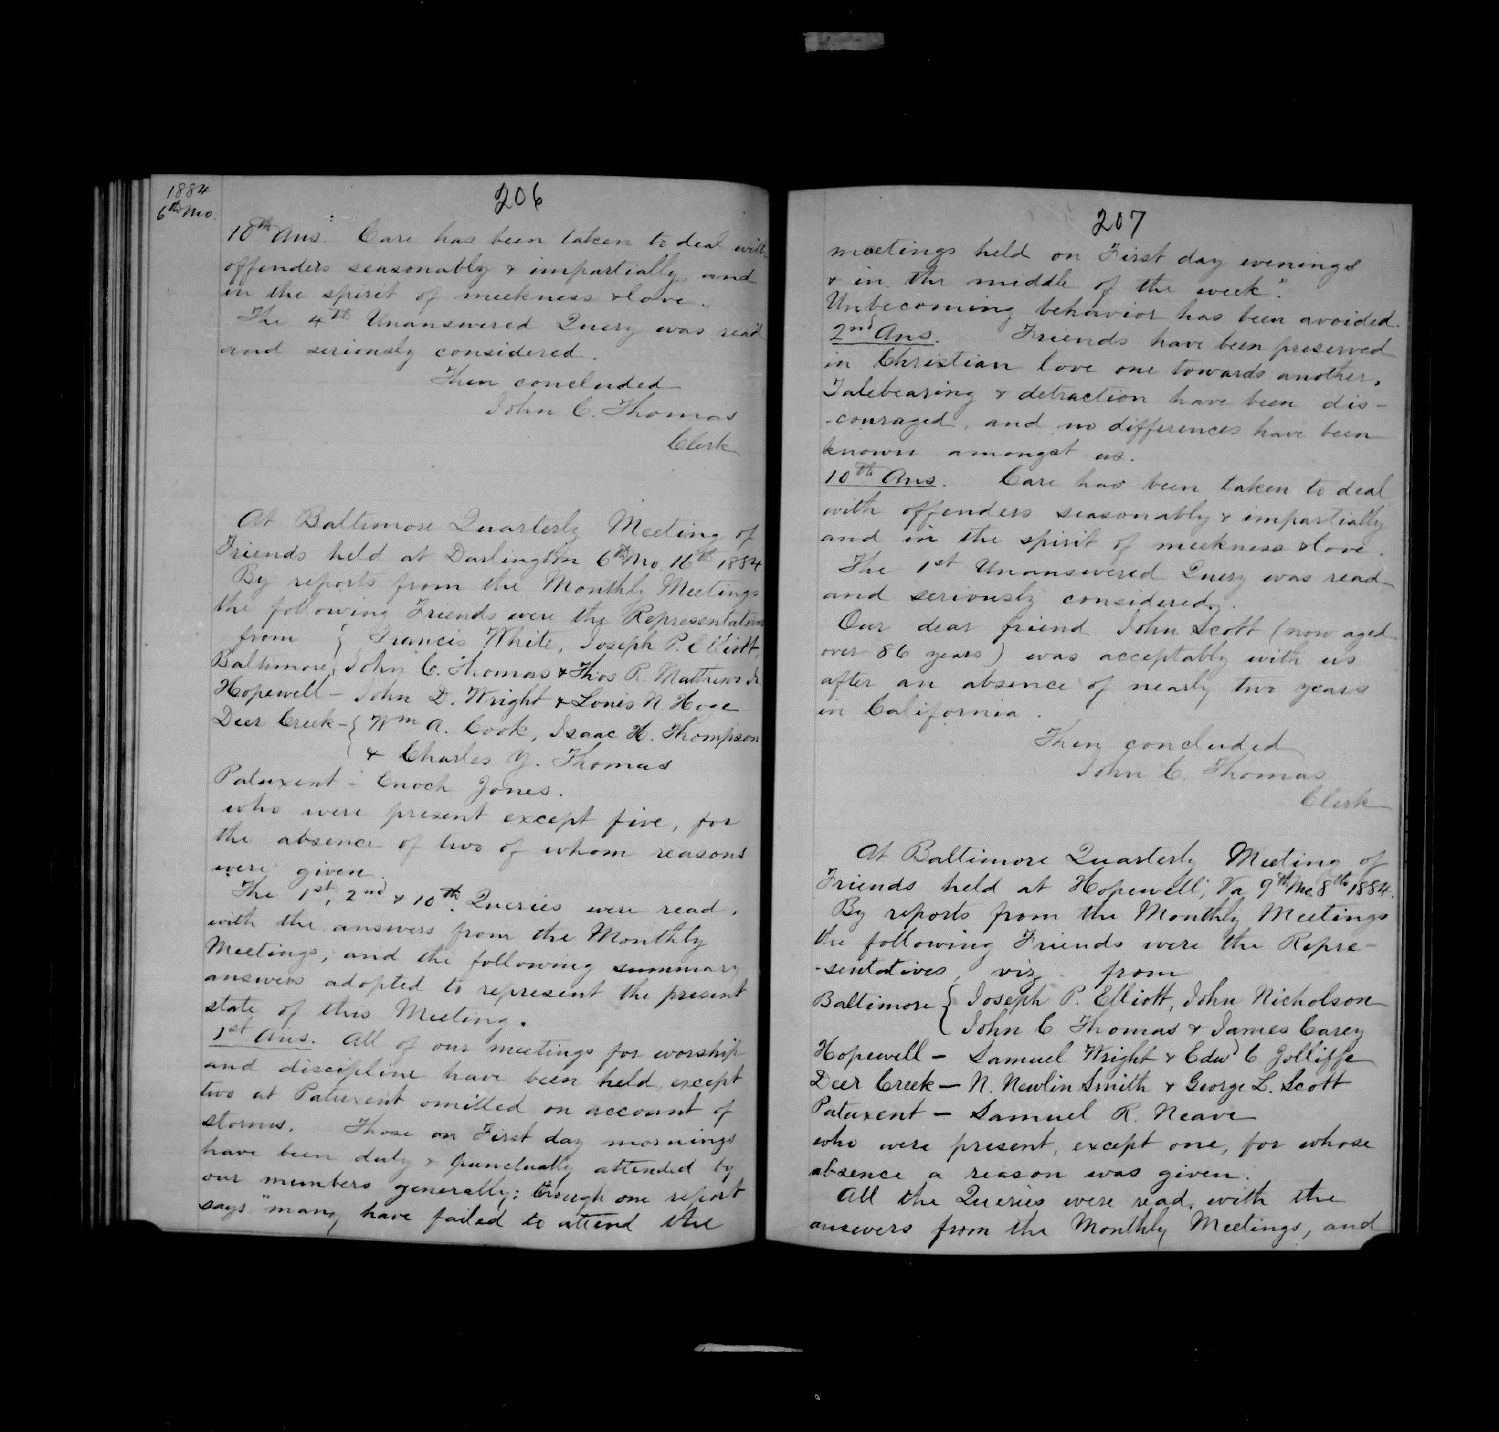 1884
6th Mo.
206
10th Ans. Care has been taken to deal with
offenders seasonably & impartially, and
in the spirit of meekness & love.
The 4th Unanswered Query was read
and seriously considered.
Then concluded
John C. Thomas
Clerk
At Baltimore Quarterly Meeting of
Friends held at Darlington 6th Mo. 16th 1884
By reports from the Monthly Meetings
the following Friends were the Representatives
from { Francis White, Joseph P. Elliott,
Baltimore, John C. Thomas & Thos R. Matthews Jr
Hopewell - John D. Wright & Louis N. Hoge
Deer Creek - { Wm A. Cook, Isaac H. Thompson
& Charles Y. Thomas
Patuxent - Enoch Jones.
who were present except five, for
the absence of two of whom reasons
were given.
The 1st, 2nd & 10th Queries were read,
with the answers from the Monthly
Meetings, and the following summary
answers adopted to represent the present
state of this Meeting.
1st Ans. All of our meetings for worship
and discipline have been held, except
two at Patuxent omitted on account of
storms. Those on First day mornings
have been duly & punctually attended by
our members generally; though one report
says "many have failed to attend the
207
meetings held on First day evenings
& in the middle of the week."
Unbecoming behavior has been avoided.
2nd Ans. Friends have been preserved
in Christian love one towards another.
Talebearing & detraction have been dis-
-couraged, and no differences have been
known amongst us.
10th Ans. Care has been taken to deal
with offenders seasonably & impartially
and in the spirit of meekness & love.
The 1st Unanswered Query was read
and seriously considered.
Our dear friend John Scott (now aged
over 86 years) was acceptably with us
after an absence of nearly two years
in California.
Then concluded
John C. Thomas
Clerk
At Baltimore Quarterly Meeting of
Friends held at Hopewell, Va 9th Mo 8th 1884.
By reports from the Monthly Meetings
the following Friends were the Repre-
-sentatives, viz. from
Baltimore { Joseph P. Elliott, John Nicholson
John C Thomas & James Carey
Hopewell - Samuel Wright & Edwd C Jolliffe
Deer Creek - N. Newlin Smith & George L. Scott
Patuxent - Samuel R. Neave
who were present, except one, for whose
absence a reason was given.
All the Queries were read, with the
answers from the Monthly Meetings, and